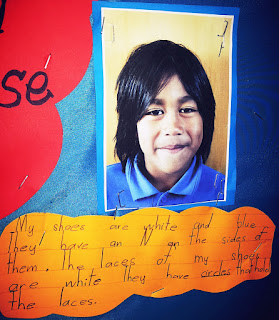 se
My shoes are white and blue
they have an N on the sides of
them. The laces of my shoes
are white They have circles that hold
the laces.